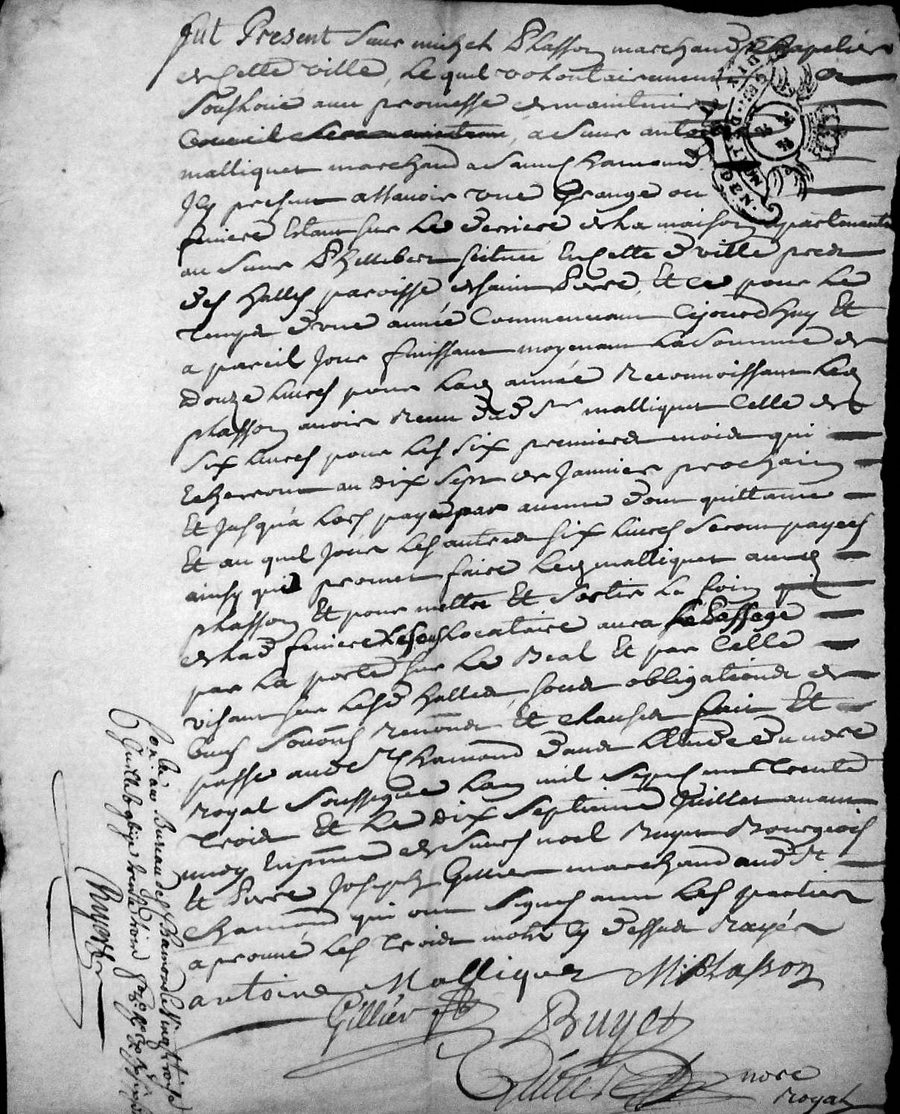 fut Present Sieur michel Plasson marchand Chapelier
de Cette ville, lequel volontairement a
Soushoué avec promesse de maintenir
a Sieur antoine
malliquet marchand a Sainct Chamond
Icy present assavoir une Grange ou
feniere Estant sur le derriere de la maison appartenante
au Sieur Phillibert scituée En Cette d ville pred
des halles paroisse de Saint Pierre, Et ce pour le
temps d'une année Commencant Cejourdhuy Et
a pareil Jour finissant moyenant la Somme de
Douze livres pour lad année Reconnoissant led
plasson avoir Receu dud Sr malliquet Celle de
Six livres pour les six premiers mois qui
Echerront au dix Sept de Janvier prochain
Et Jusqu'a lors payé par avance dont quittance
Et au quel Jour les autres six livres Seront payees
ainsy que promet faire led malliquet aud
plasson Et pour mettre Et Sortir le foin
de lad feniere led Sous locataire aura le Passage
par la porte sur le Beal Et par Celle
visant sur lesd halles, sous obligations de
biens Soums Renonds Et clauses fait Et
passé aud St Chamond dans l'Etude du nore
Royal Soussigné lan mil Sept cent trente
trois Et le dix Septieme Juillet avant
midy En pnce de Sieurs noel Buyet Bourgeois
Et Pierre Joseph Gillier marchand aud St
Chamond qui ont Signés avec les parties
aprouvé les trois mots cy dessus Rayés
antoine Malliquet MiPlasson
Gillier
Buyet
nore
Royal
Conlé au Bureau de St Chamond le vingt trois
Juillet